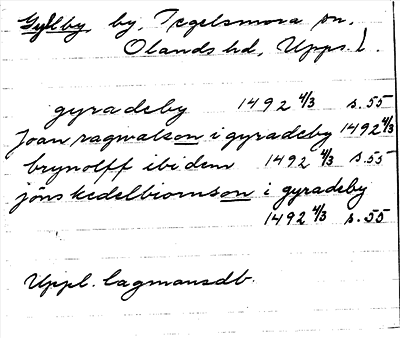 Gyllby, by, Tegelsmora sn,
Olands hd, Upps. l.
gyradeby 1492 4/3 s. 55
Joan ragwalson i gyradeby 1492 4/3
brynolff ibidem 1492 4/3 s. 55
jöns kedelbiornson i gyradeby
1492 4/3 s. 55
Uppl. lagmansdb.